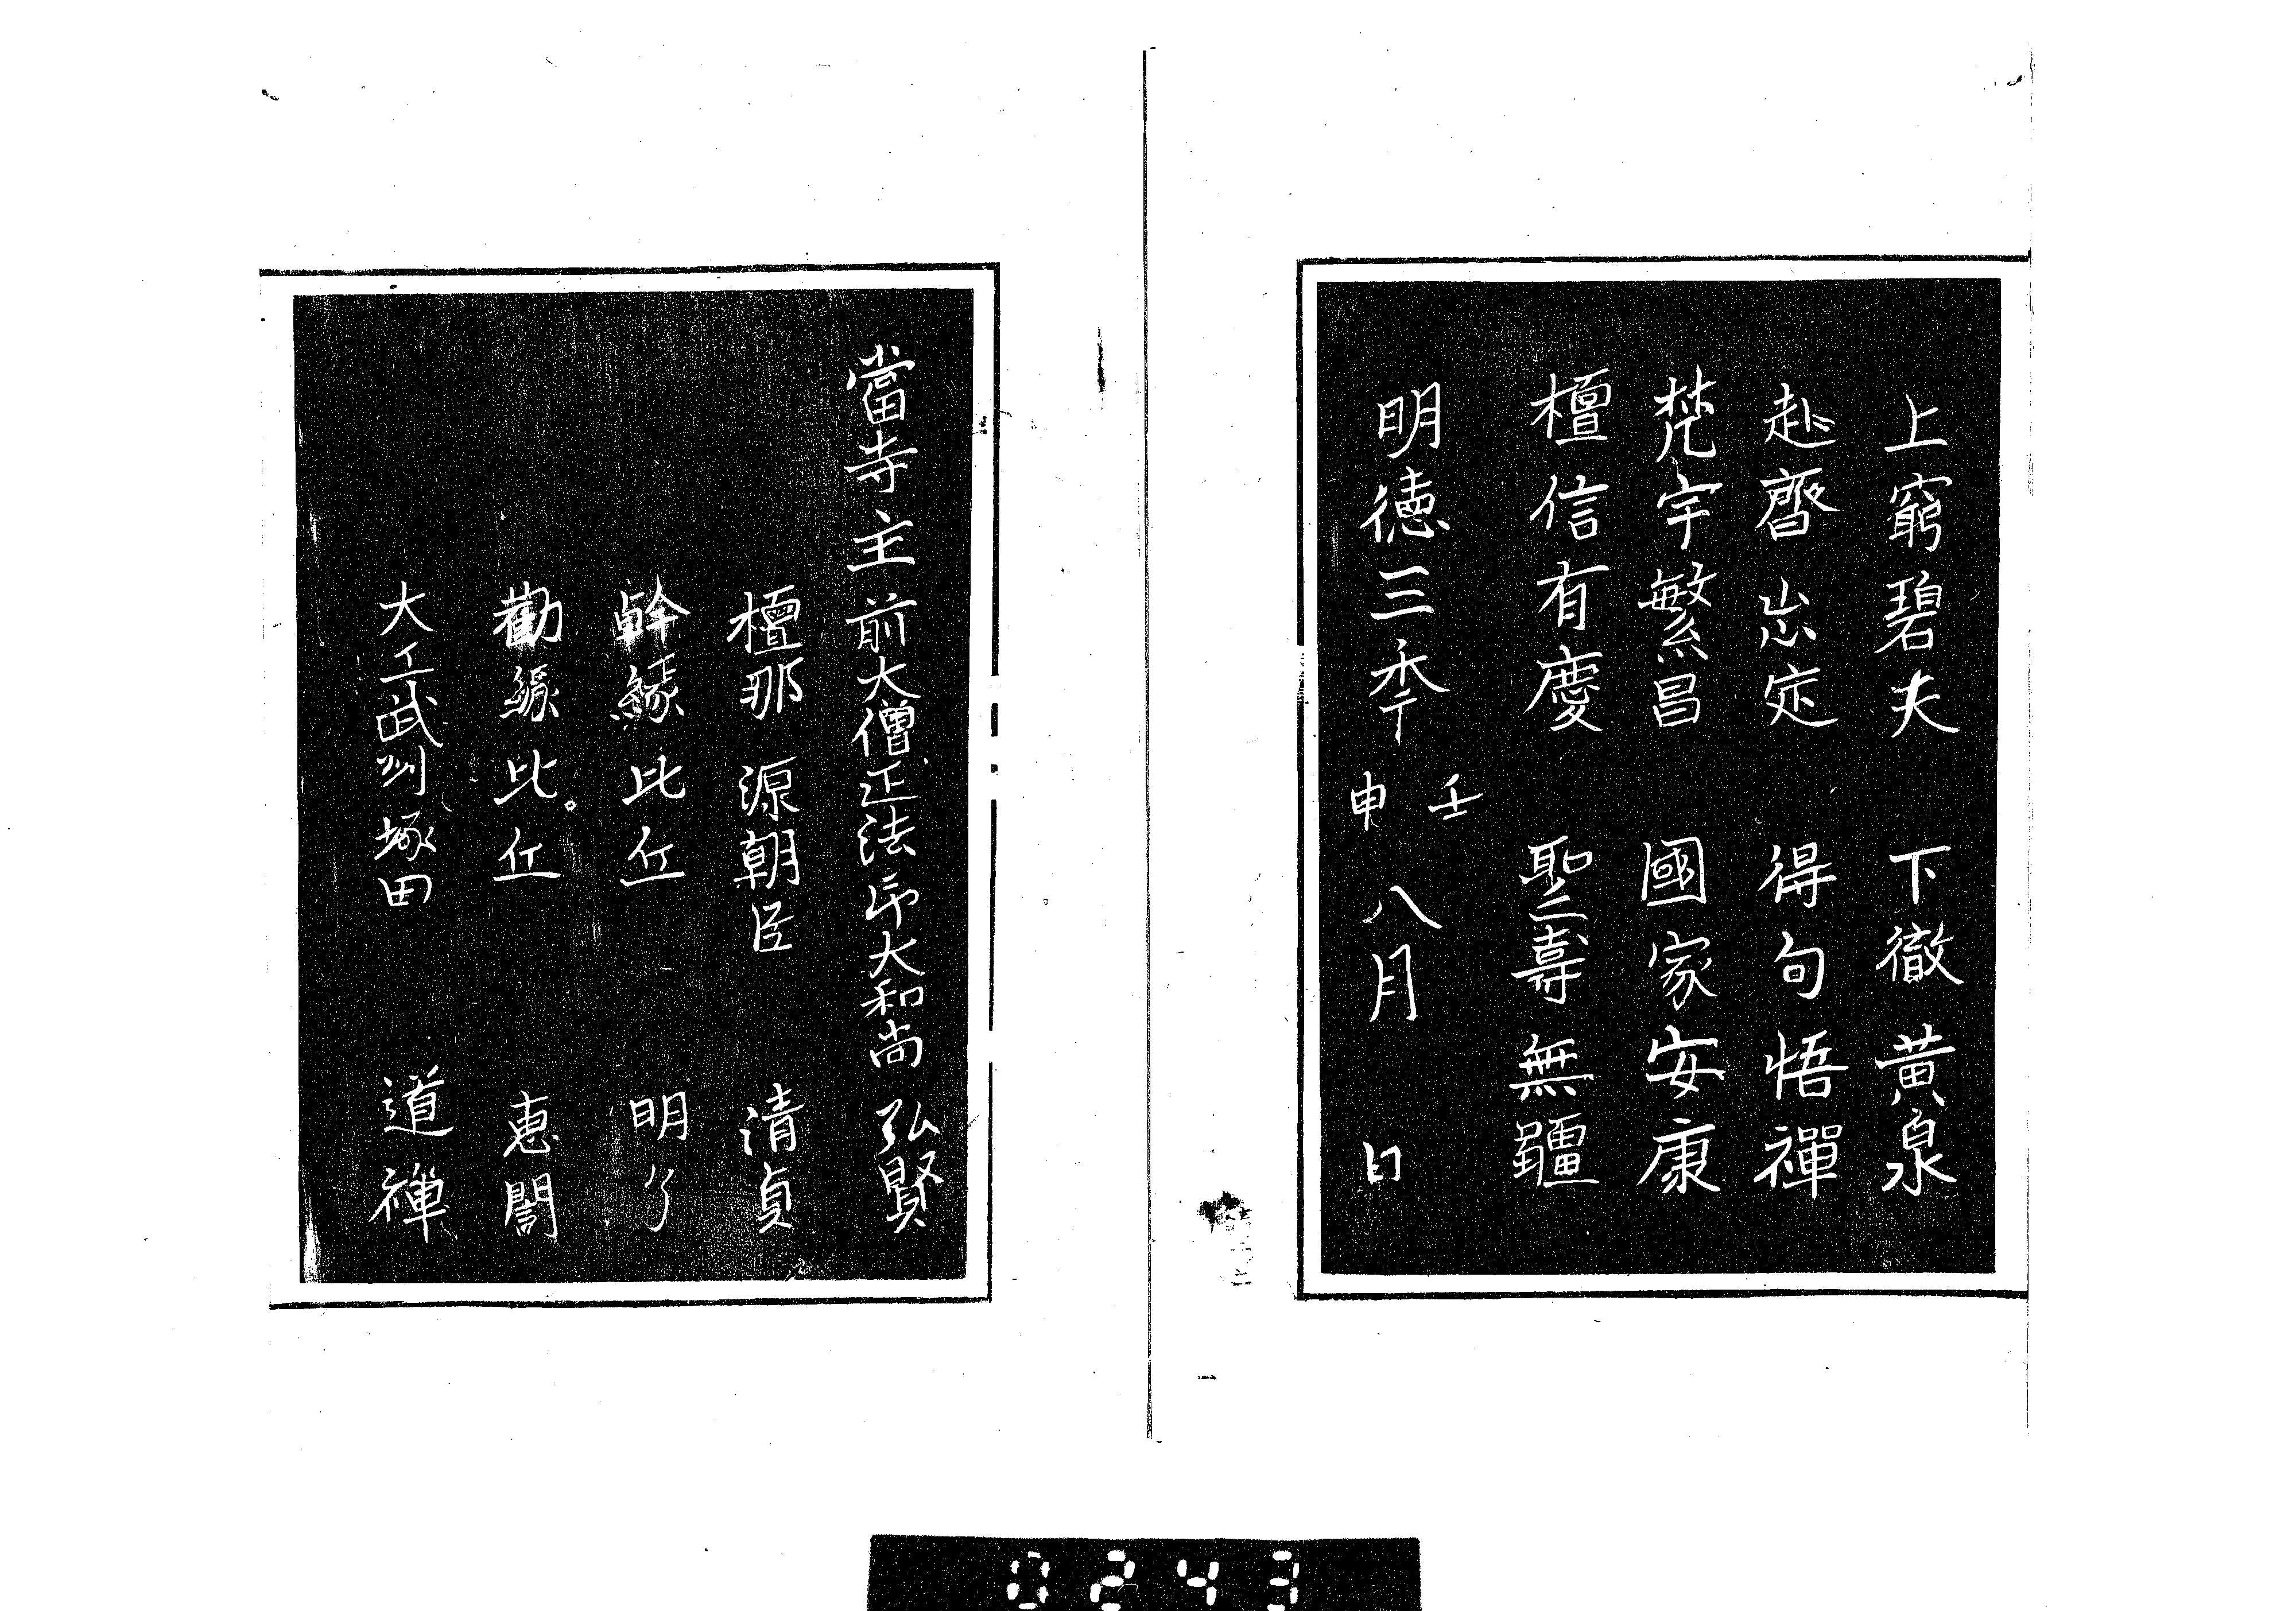 上窮碧夫　下徹黄泉
赴齋出定　得句悟禪
梵宇繁昌　國家安康
檀信有慶　聖壽無疆
明徳三季壬申八月　日
當寺主前大僧正法印大和尚弘賢
檀那　源朝臣　清貞
幹緣比丘　明了
勸緣比丘　惠誾
大工武州塚田　道禅
0243